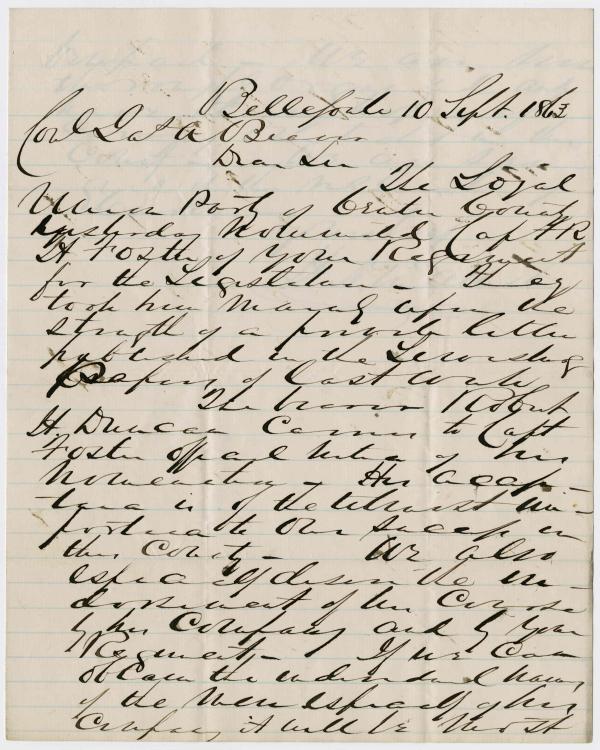 Bellefonte 10 Sept. 1863
Col Jas A Beaver
Dear Sir The Loyal
Union Party of Centre County
yesterday nominated Capt R
H Foster of your Regiment
for the Legislature – They
took him mainly upon the
strength of a private letter
published in the Lewisburg
papers of last week
The bearer Robert
H. Duncan carries to Capt
Foster official notice of his
nomination – His accep-
tance is of the utmost im-
portance to our success in
this County – We also
especially desire the in-
dorsement of his course
by his Company and by your
Regiment – If we can
obtain the individual names
of the men especially of his
Company it will be most